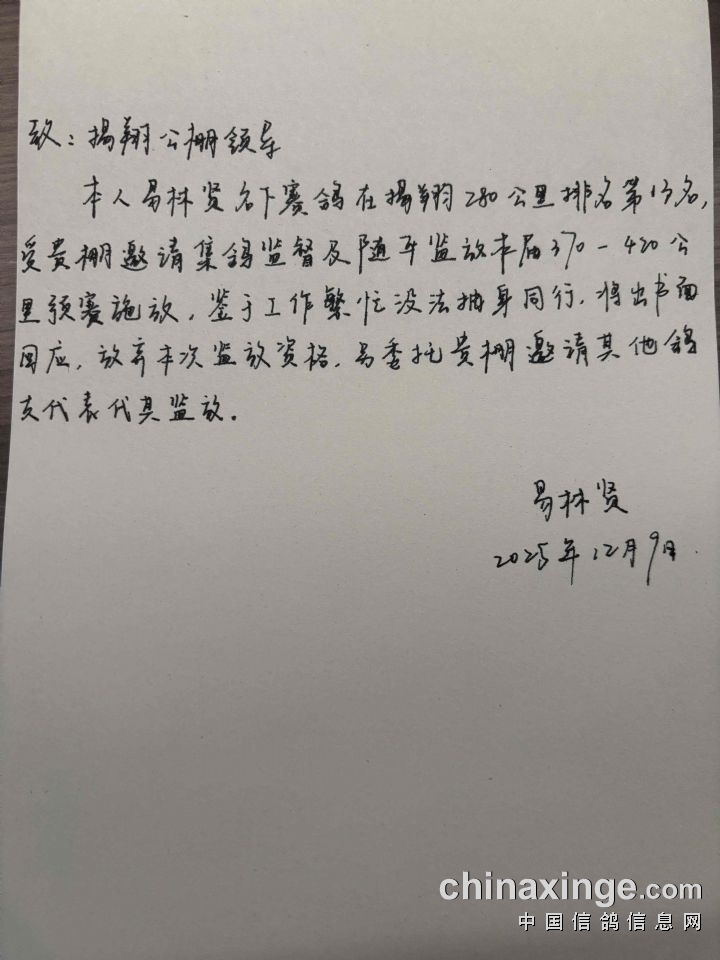 致：揚翔公棚领导
本人易林贤名下赛鸽在揚翔280公里排名第13名，
受贵棚邀请集鸽监督及随车监放本届370-420公
里预赛施放，鉴于工作繁忙没法抽身同行，将出书面
回应，放弃本次监放资格，另委托贵棚邀请其他鸽
友代表代其监放。
易林贤
2025年12月9日
chinaxinge.com
中国信鸽信息网